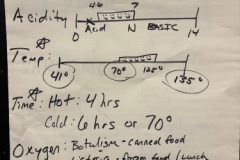 4.6 7
Acidity
0 Acid N BASIC 14
Temp:
41° 70° 125° 135°
Time: Hot: 4 hrs
Cold: 6 hrs or 70°
Oxygen: Botulism - canned food